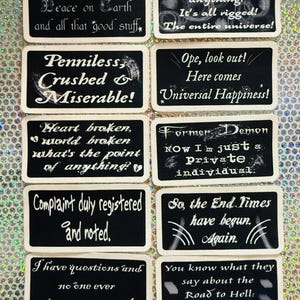 Peace on Earth
and all that good stuff.
anything!
It's all rigged!
The entire universe!
Penniless,
Crushed &
Miserable!
Ope, look out!
Here comes
Universal Happiness!
Heart broken,
world broken
what's the point
of anything!
Former Demon
Now I'm just a
private
individual.
Complaint duly registered
and noted.
So, the End Times
have begun.
Again.
I have questions and
no one ever
You know what they
say about the
Road to Hell.